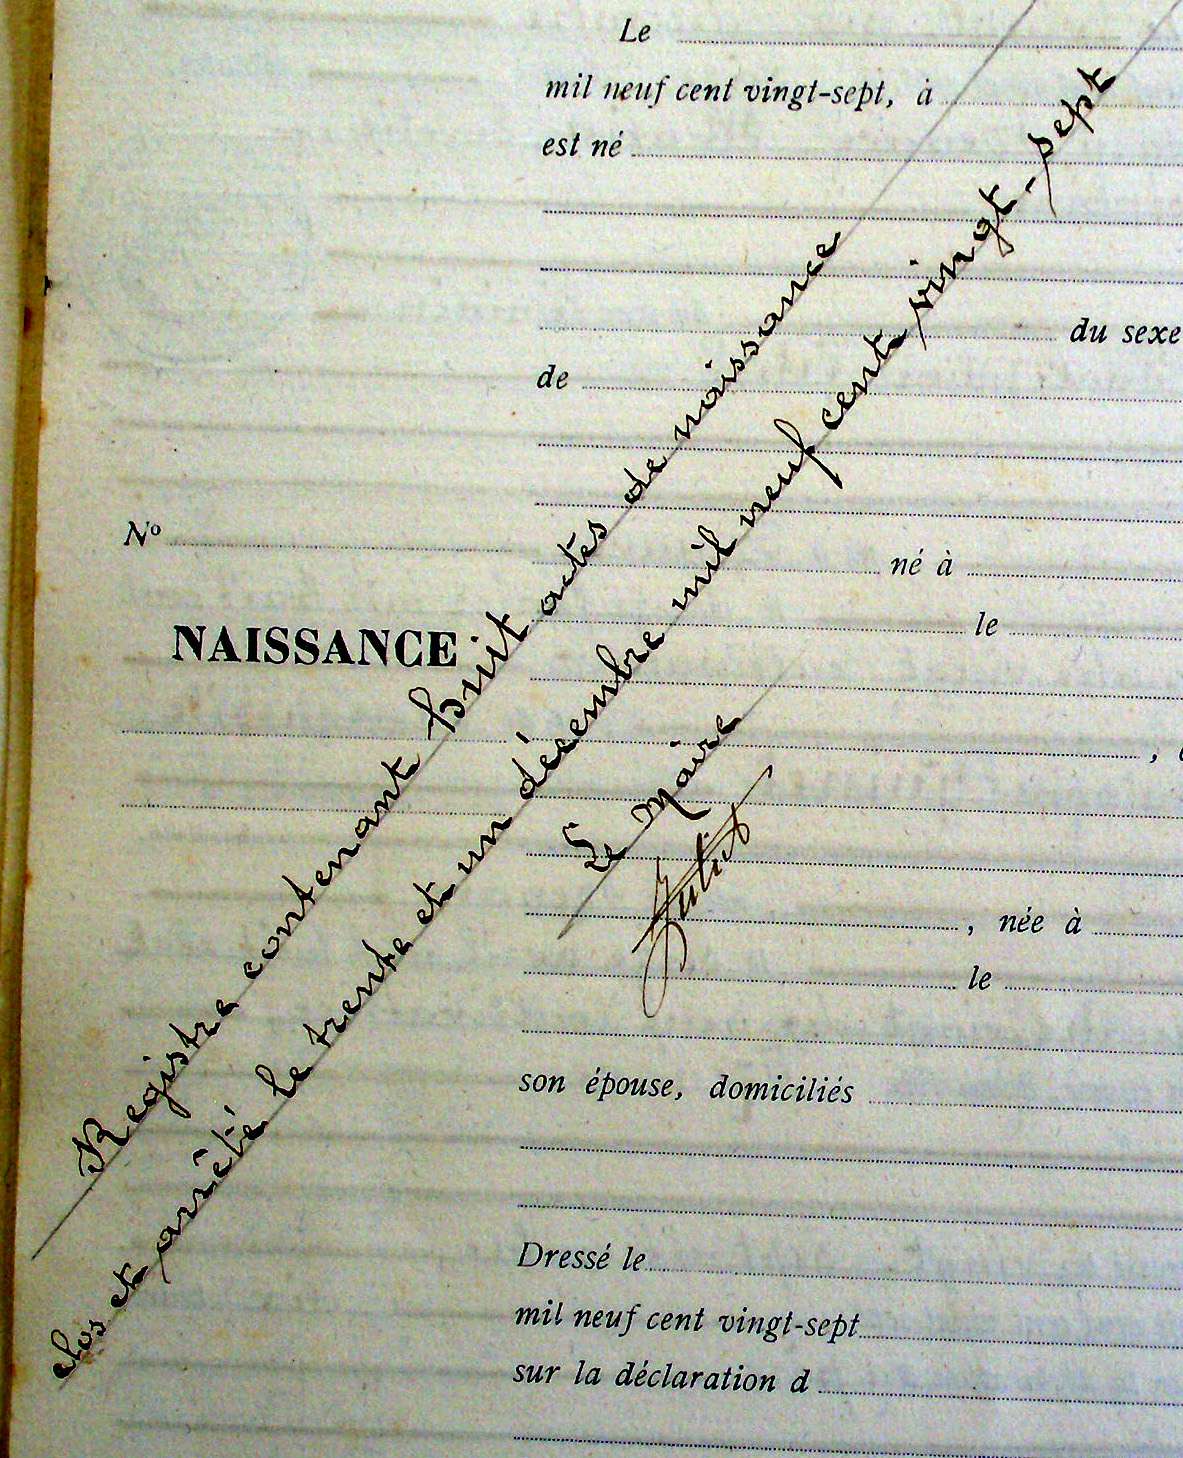 Le
mil neuf cent vingt-sept, à
est né
du sexe
de
Nº
né à
le
NAISSANCE
, née à
le
son épouse, domiciliés
Dressé le
mil neuf cent vingt-sept
sur la déclaration d
Registre contenant huit actes de naissance
clos et arrêté le trente et un décembre mil neuf cent vingt-sept
Le Maire